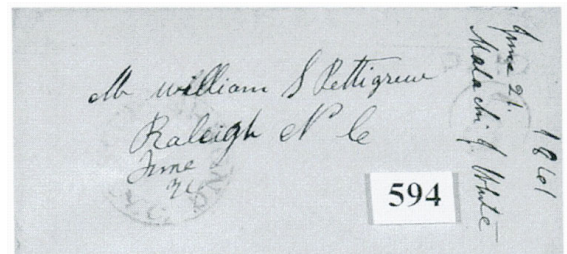 Mr William S Pettigrew
Raleigh N C
June
21
594
June 21. 1861
Malachi J. White